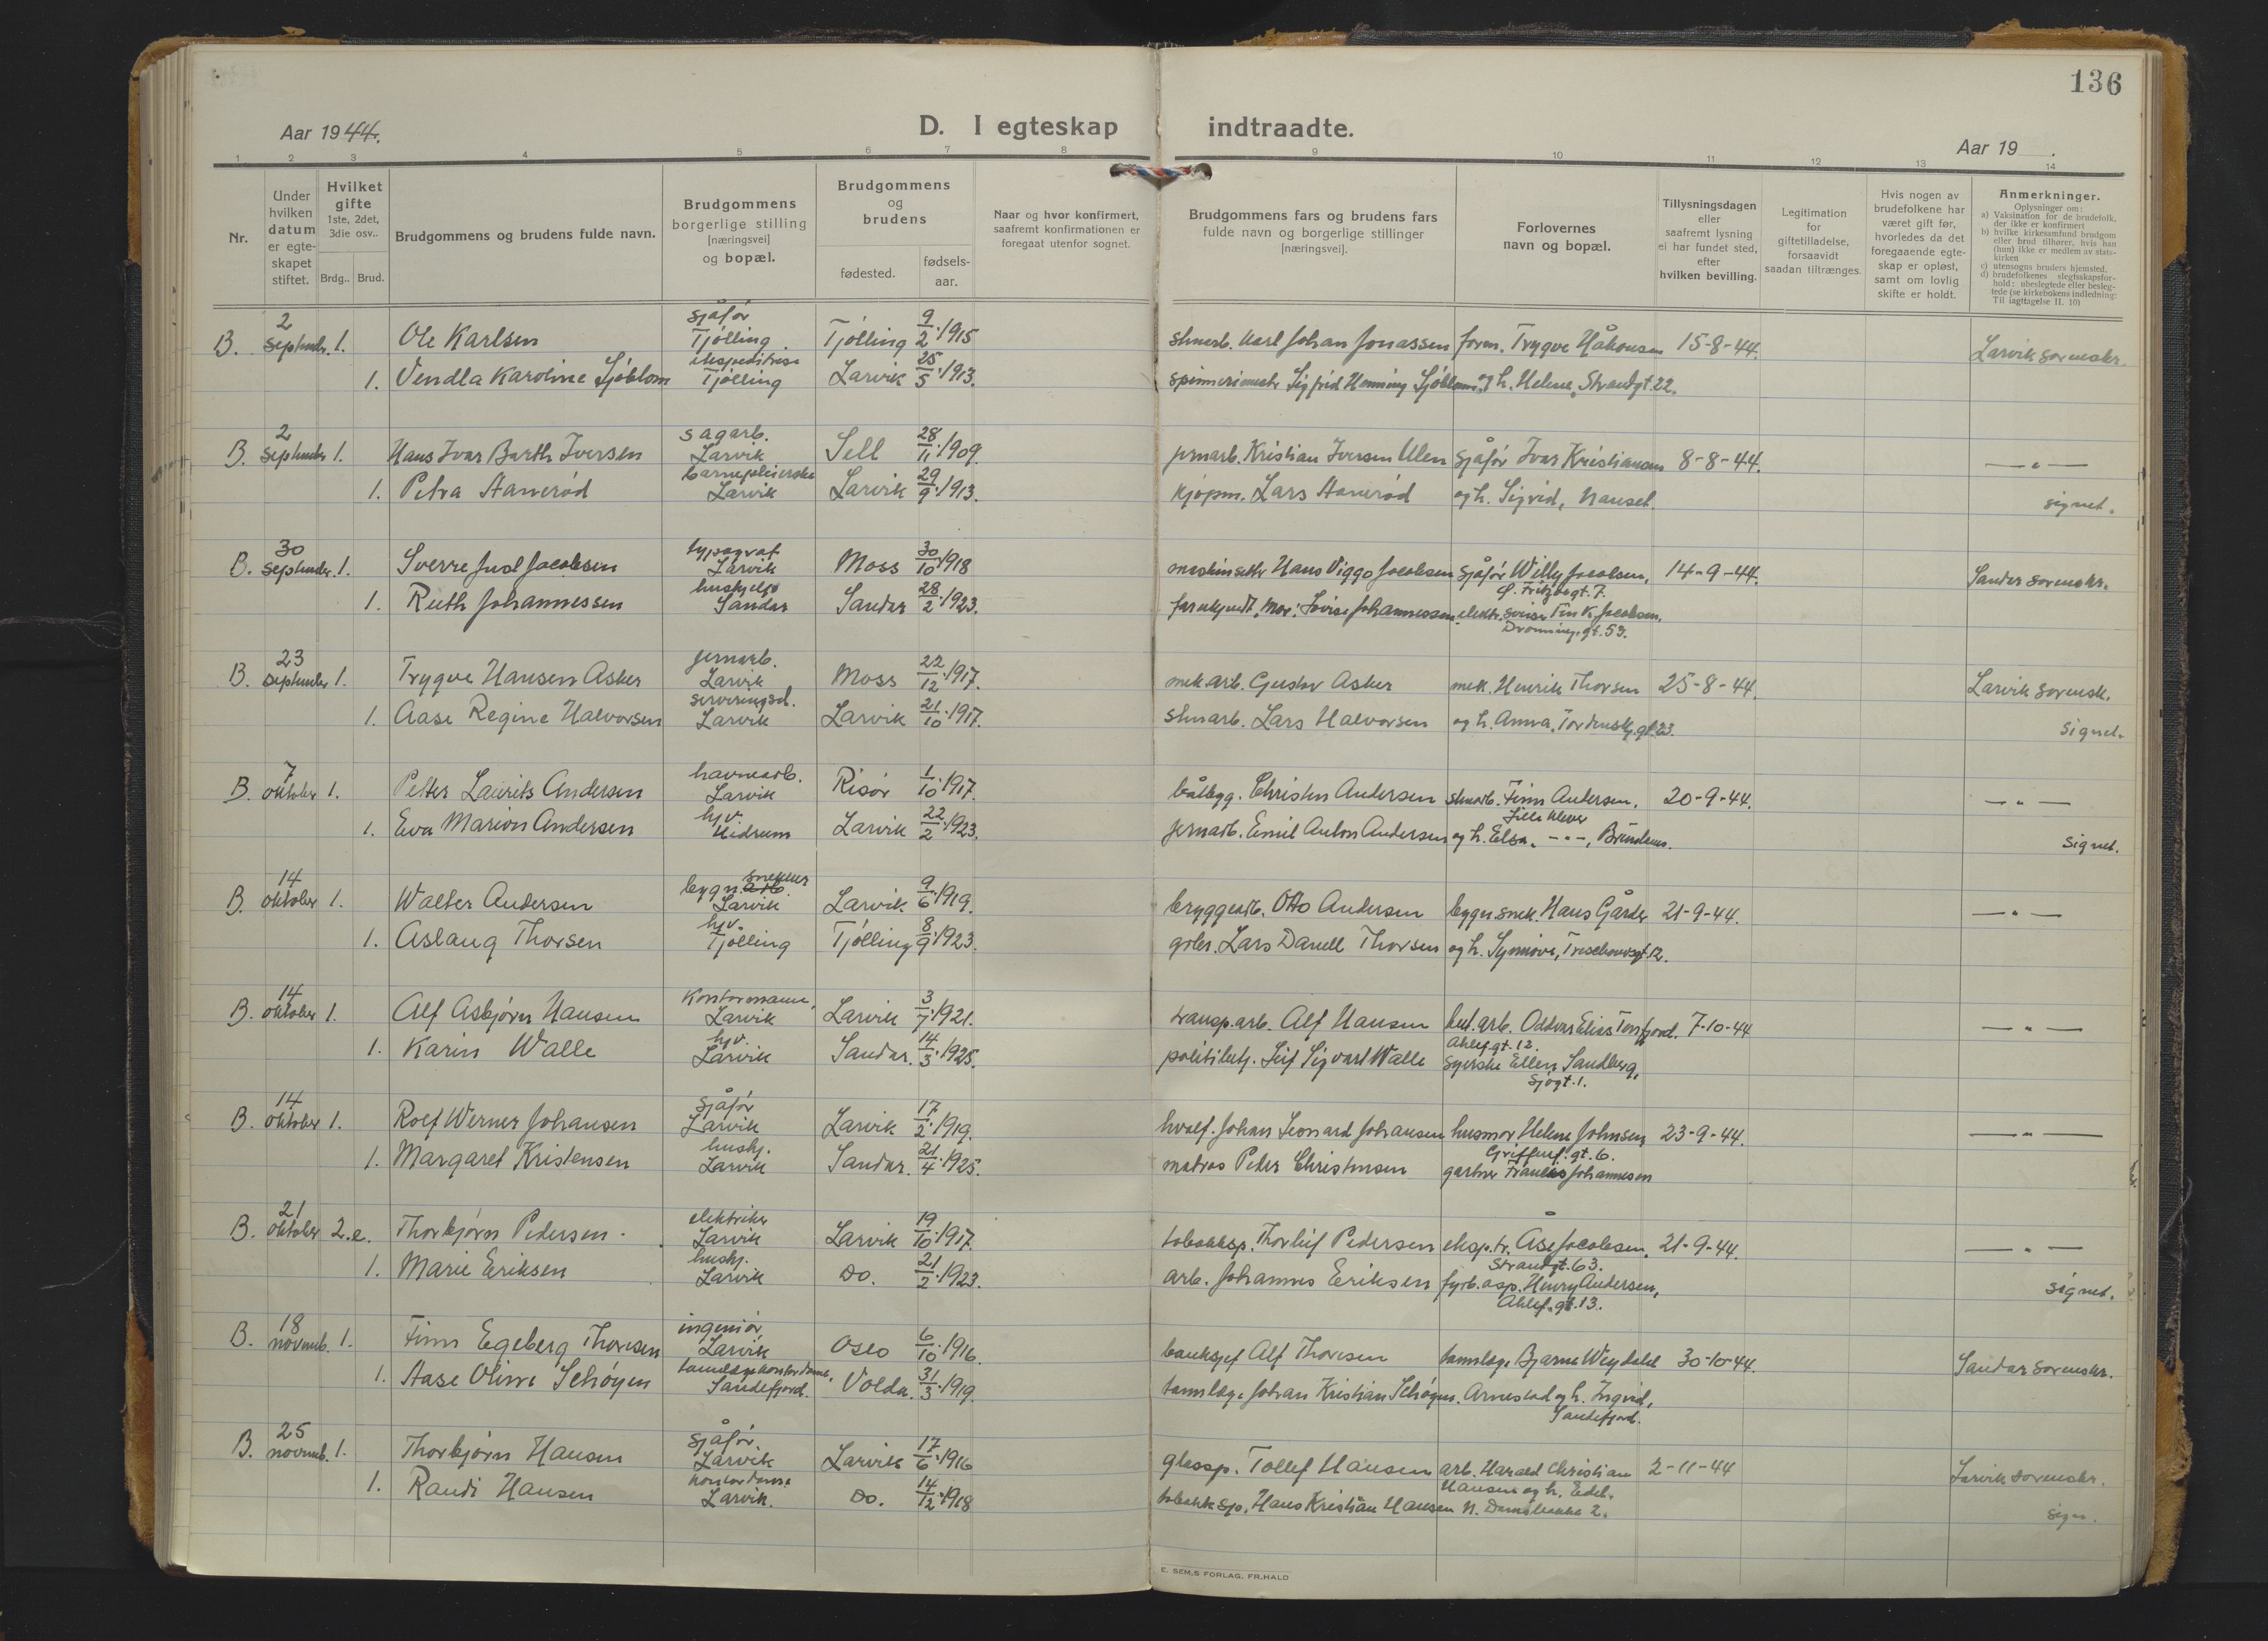 136
Aar 1944.
D. I egteskap indtraadte.
Aar 19 .
1 2 3 4 5 6 7 8 9 10 11 12 13 14
Nr.
Under hvilken datum er egteskapet stiftet.
Hvilket gifte 1ste, 2det, 3die osv..
Brdg.. Brud.
Brudgommens og brudens fulde navn.
Brudgommens borgerlige stilling [næringsvei] og bopæl.
Brudgommens og brudens
fødested. fødsels-aar.
Naar og hvor konfirmert, saafremt konfirmationen er foregaat utenfor sognet.
Brudgommens fars og brudens fars fulde navn og borgerlige stillinger [næringsvei].
Forlovernes navn og bopæl.
Tillysningsdagen eller saafremt lysning ei har fundet sted, efter hvilken bevilling.
Legitimation for giftetilladelse, forsaavidt saadan tiltrænges.
Hvis nogen av brudefolkene har været gift før, hvorledes da det foregaaende egteskap er opløst, samt om lovlig skifte er holdt.
Anmerkninger.
Oplysninger om:
a) Vaksination for de brudefolk, der ikke er konfirmert
b) hvilke kirkesamfund brudgom eller brud tilhører, hvis han (hun) ikke er medlem av statskirken
c) utensogns bruders hjemsted.
d) brudefolkenes slegtsskapsforhold: ubeslegtede eller beslegtede (se kirkebokens indledning: Til iagttagelse II. 10)
B. 2 september 1. Ole Karlsen sjåfør Tjølling Tjølling 9/2 1915 Karl Johan Jonassen form. Trygve Håkonsen 15-8-44. Larvik sorenskr.
1. Vendla Karoline Sjöblom ekspeditrise Tjølling Larvik 25/5 1913. spinnerimestr Sigfrid Henning Sjöblom og h. Helene, Strandgt. 22.
B. 2 september 1. Hans Ivar Barth Iversen sagarb. Larvik Sell 28/11 1909. jernarb. Kristian Iversen Ulen sjåfør Ivar Kristiansen 8-8-44. — " —
1. Petra Hanerød barnepleierske Larvik Larvik 29/9 1913. kjøpm. Lars Hanerød og h. Sigrid, Nanset. signet.
B. 30 september 1. Sverre Juel Jacobsen typograf Larvik Moss 30/10 1918 maskinsetter Hans Viggo Jacobsen sjåfør Willy Jacobsen, 14-9-44. Sandar sorenskr.
O. Fritzøegt. 7.
1. Ruth Johannessen hushjelp Sandar Sandar 28/2 1923. far ukjendt, mor: Lovise Johannessen elektr. sveiser Finn K. Jacobsen,
Dronning.gt. 53.
B. 23 september 1. Trygve Hansen Asker jernarb. Larvik Moss 22/12 1917. mek arb. Gustav Asker mek. Henrik Thorsen 25-8-44. Larvik sorensk.
1. Aase Regine Halvorsen serveringsd. Larvik Larvik 21/10 1917. stenarb. Lars Halvorsen og h. Anna, Tordensk.gt. 23. signet.
B. 7 oktober 1. Petter Laurits Andersen havnearb. Larvik Risør 1/10 1917. båtbyg. Christen Andersen stenarb. Finn Andersen, 20-9-44. — " —
Lille Klever
1. Eva Marion Andersen hjv. Hedrum Larvik 22/2 1923. jernarb. Emil Anton Andersen og h. Elsa. - " -, Brunlanes. signet.
B. 14 oktober 1. Walter Andersen bygn. arb. snekker Larvik Larvik 9/6 1919. bryggearb. Otto Andersen bygn snek. Hans Gårder 21-9-44. — " —
1. Aslaug Thorsen hjv. Tjølling Tjølling 8/9 1923. Lars Danell Thorsen og h. Synnøve, Treschowsgt 12.
B. 14 oktober 1. Alf Asbjørn Hansen kontormann, Larvik Larvik 3/7 1921. transp.arb. Alf Hansen arb. Oddvar Elias 7-10-44 — " —
Ahlef.gt. 12.
1. Karin Walle hjv. Larvik Sandar. 14/3 1925. politibetj. Leif Sigvart Walle syerske Ellen Sandberg,
Sjøgt. 1.
B. 14 oktober 1. Rolf Werner Johansen sjåfør Larvik Larvik 17/2 1919. hvalf. Johan Leonard Johansen husmor Helene Johnsen, 23-9-44. — " —
Griffenf. gt. 6.
1. Margaret Kristensen hushj. Larvik Sandar. 21/4 1925. matros Peder Christensen gartner Francis Johannesen
B. 21 oktober 2.e. Thorbjørn Pedersen. elektriker Larvik Larvik 19/10 1917. tobakksp. Thorleif Pedersen eksp.tr. Åse Jacobsen, 21-9-44. — " —
Strandgt. 63.
1. Marie Eriksen hushj. Larvik Do. 21/2 1923. arb. Johannes Eriksen fyrb. asp. Henry Andersen, signet.
Ahlef.gt. 13.
B. 18 novemb. 1. Finn Egeberg Thoresen ingeniør Larvik Oslo 6/10 1916. banksjef Alf Thoresen tannlæge Bjarne Weydahl 30-10-44. Sandar sorenskr.
1. Aase Oline Schøyen Sandefjord. Volda. 31/3 1919. tannlæge Johan Kristian Schøyen. Arnestad og h. Ingrid,
Sandefjord.
B. 25 novemb. 1. Thorbjørn Hansen sjåfør Larvik Larvik 17/6 1916 glassp. Tollef Hansen arb. Harald Christian 2-11-44 Larvik sorenskr.
Hansen og h. Edel.
1. Randi Hansen kontordame Larvik. Do. 14/12 1918 tobakksp. Hans Kristian Hansen N. Damsbakke 2. sign.
E. SEM.S FORLAG. FR.HALD